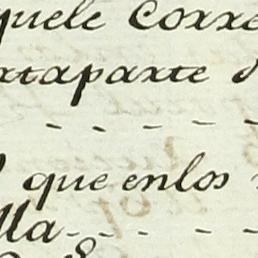 quele Corre
rtaparte d
- - - - -
que enlos
lla - - - -